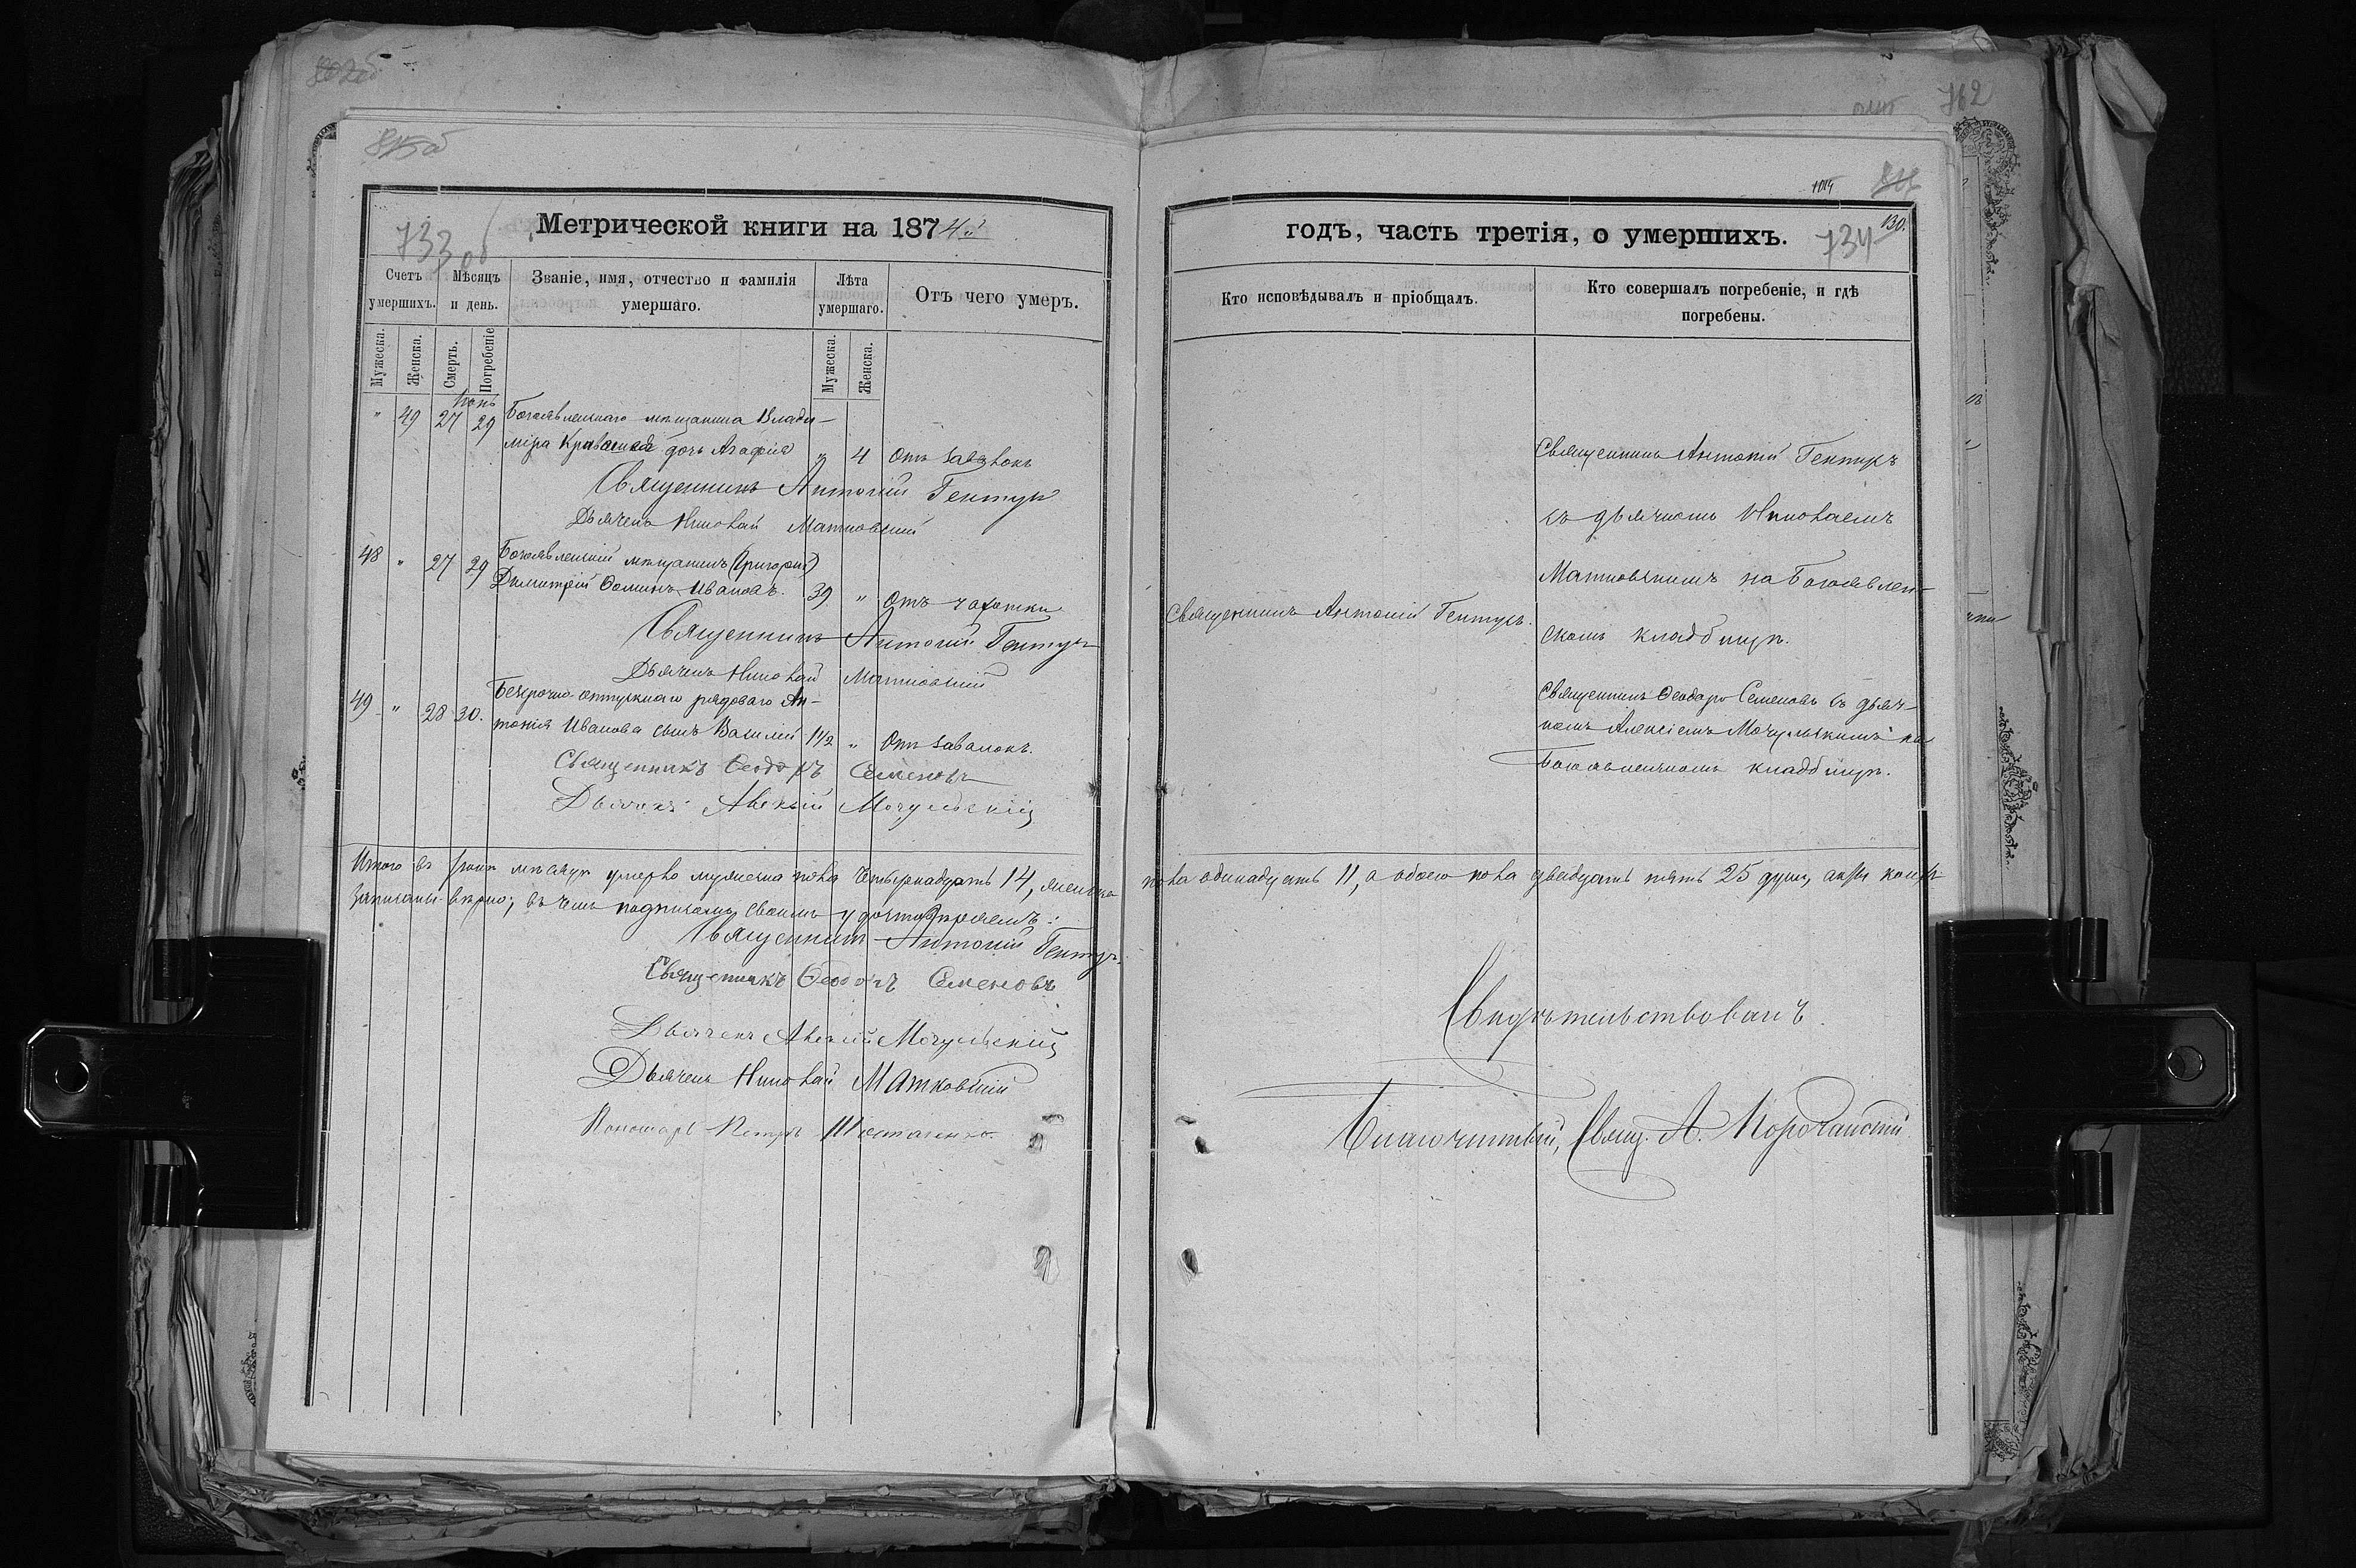 762
734
130.
733 об
Метрической книги на 1874й
годъ, часть третія, о умершихъ.
Счетъ умершихъ.
Мѣсяцъ и день.
Званіе, имя, отчество и фамилія умершаго.
Лѣта умершаго.
Отъ чего умеръ.
Мужеска.
Женска.
Смерть.
Погребеніе
Мужеска.
Женска.
Кто исповѣдывалъ и пріобщалъ.
Кто совершалъ погребеніе, и гдѣ погребены.
Іюнь
" 49 27 29 Богоявленскаго мѣщанина Влади-
міра дочь Агафія " 4 Отъ
Священникъ Антоній Гентук
Дьячекъ Николай Матковскій
48 " 27 29 Богоявленскій мѣщанинъ (Григорій)
Димитрій Ѳоминъ Ивановъ. 39 " Отъ чахотки
Священникъ Антоній Гентук
Дьячекъ Николай Матковскій
49 " 28 30. Безсрочно отпускнаго рядоваго Ан-
тонія Иванова сынъ Василій 1 1/2 " Отъ завалокъ.
Священникъ Ѳеодоръ Семеновъ
Дьячекъ Алексій Мочульскій
Священникъ Антоній Гентукъ
съ дьячкомъ Николаемъ
Матковскимъ на Богоявлен-
скомъ кладбищѣ.
Священникъ Антоній Гентукъ.
Священникъ Ѳеодоръ Семеновъ съ дьяч-
комъ Алексіемъ Мочульскимъ на
Богоявленскомъ кладбищѣ.
Итого въ Іюнѣ мѣсяцѣ умерло мужеска пола четырнадцать 14, женска пола одинадцать 11, а обоего пола двадцать пять 25 душъ,
записаны вѣрно, въ чемъ подписомъ своимъ удостовѣряемъ:
Священникъ Антоній Гентук
Священникъ Ѳеодоръ Семеновъ
Дьячекъ Алексій Мочульскій
Дьячекъ Николай Матковскій
Пономарь Петръ
Свидѣтельствовалъ
Благочинный, Свящ. А.